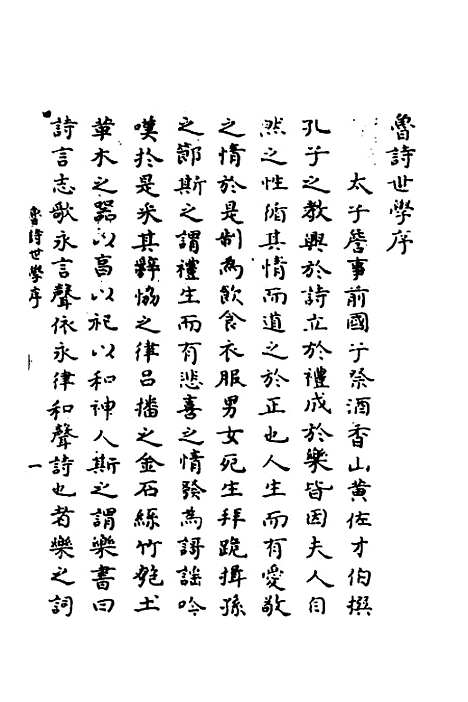 魯詩世學序
太子詹事前國子祭酒香山黃佐才伯撰
孔子之教興於詩立於禮成於樂皆因夫人自
然之性循其情而道之於正也人生而有愛敬
之情於是制為飲食衣服男女死生拜跪揖孫
之節斯之謂禮生而有悲喜之情發為謌謠吟
嘆於是采其辭恊之律呂播之金石絲竹匏土
革木之器以享以祀以和神人斯之謂樂書曰
詩言志歌永言聲依永律和聲詩也者樂之詞
魯詩世學序
一